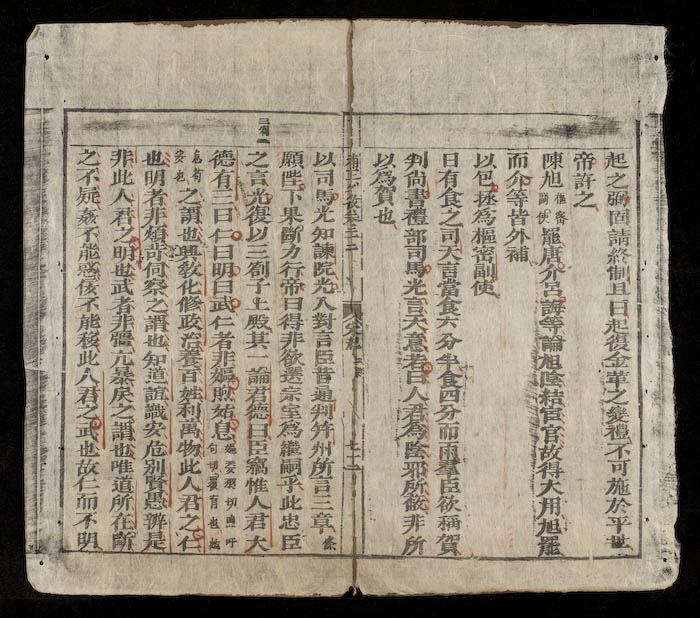 起之弼固請終制且曰起復金革之變禮不可施於平世
帝許之
陳旭罷唐介呂誨等論旭陰結宦官故得大用旭罷
而介等皆外補
以包拯為樞密副使
日有食之司天言當食六分半食四分而雨羣臣欲稱賀
判尚書禮部司馬光言天意若曰人君為陰邪所蔽非所
以為賀也
以司馬光知諫院光入對言臣昔通判并州所言三章
願陛下果斷力行帝曰得非欲選宗室為繼嗣乎此忠臣
之言光復以三劄子上殿其一論君德曰臣竊惟人君大
德有三曰仁曰明曰武仁者非嫗煦姑息
之謂也興教化修政治養百姓利萬物此人君之仁
也明者非煩苛伺察之謂也知道誼識安危別賢愚辨是
非此人君之明也武者非彊亢暴戾之謂也唯道所在斷
之不疑姦不能惑佞不能移此人君之武也故仁而不明
三劄